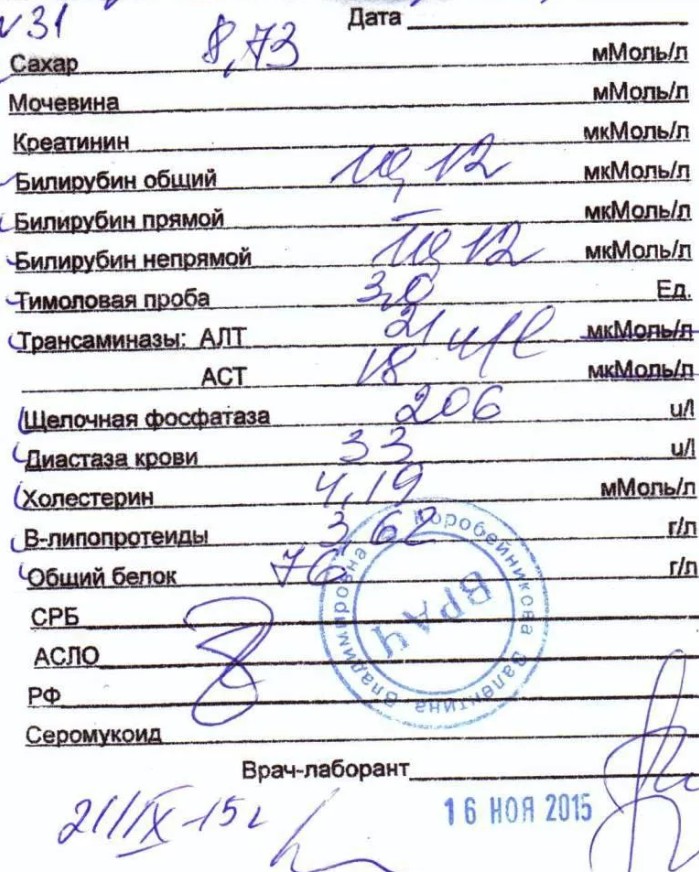 №31
Дата
Сахар 8,73 мМоль/л
Мочевина мМоль/л
Креатинин мкМоль/л
Билирубин общий 12 мкМоль/л
Билирубин прямой – мкМоль/л
Билирубин непрямой 12 мкМоль/л
Тимоловая проба 3,0 Ед.
Трансаминазы: АЛТ 21 u/l мкМоль/л
АСТ 18 мкМоль/л
Щелочная фосфатаза 206 u/l
Диастаза крови 33 u/l
Холестерин 4,19 мМоль/л
В-липопротеиды 3,62 г/л
Общий белок 76 г/л
СРБ
АСЛО
РФ
Серомукоид
Коробейникова Валентина Владимировна
ВРАЧ
Врач-лаборант
21/IX-15г
16 НОЯ 2015